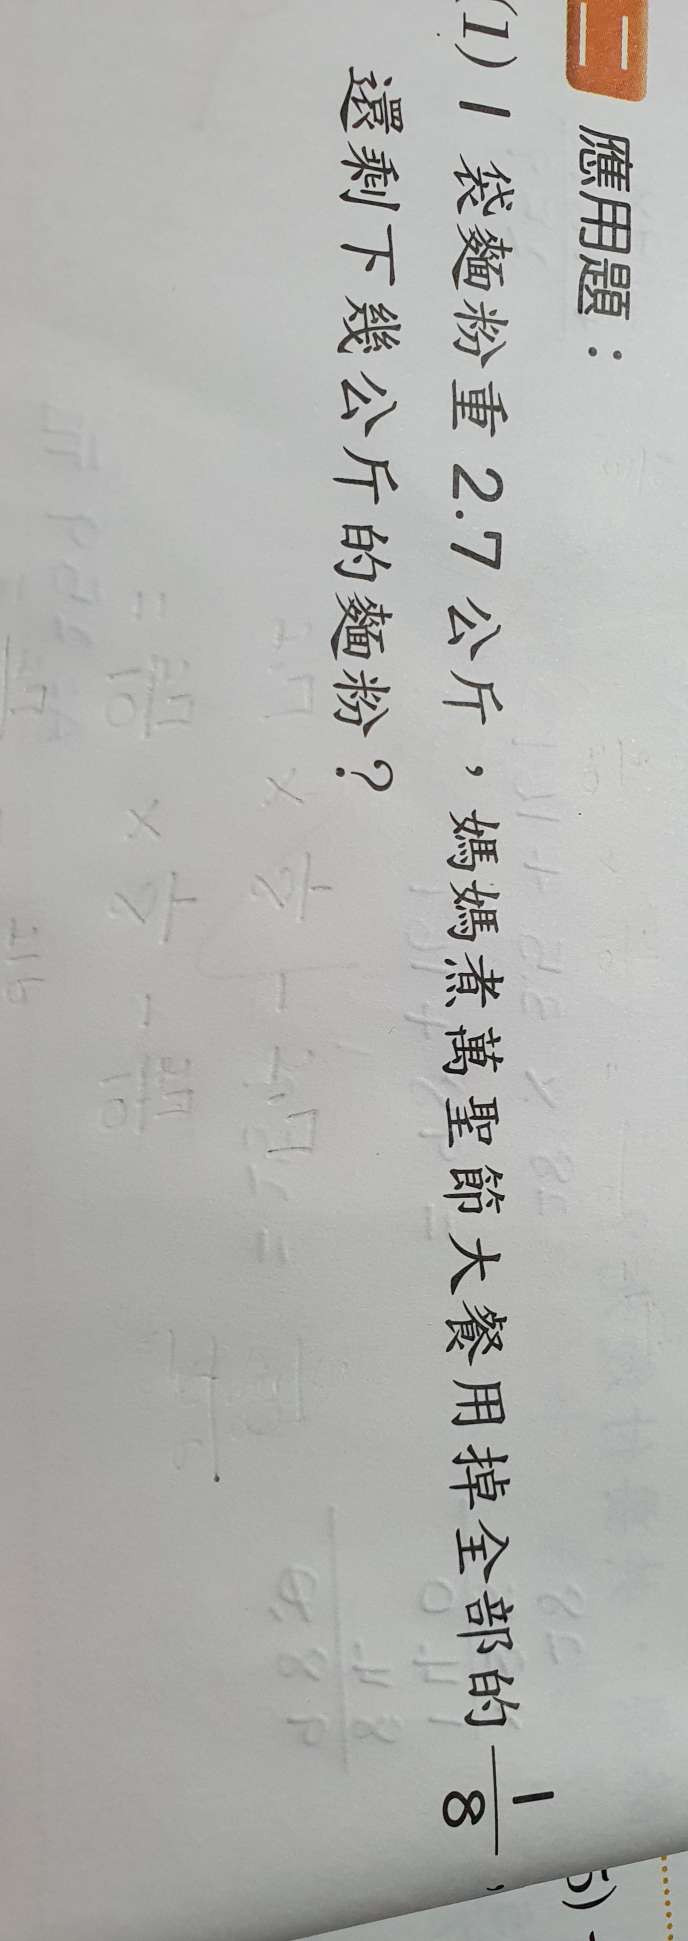 二 應用題：
(1) 1 袋麵粉重 2.7 公斤，媽媽煮萬聖節大餐用掉全部的 1/8，
還剩下幾公斤的麵粉？
5)